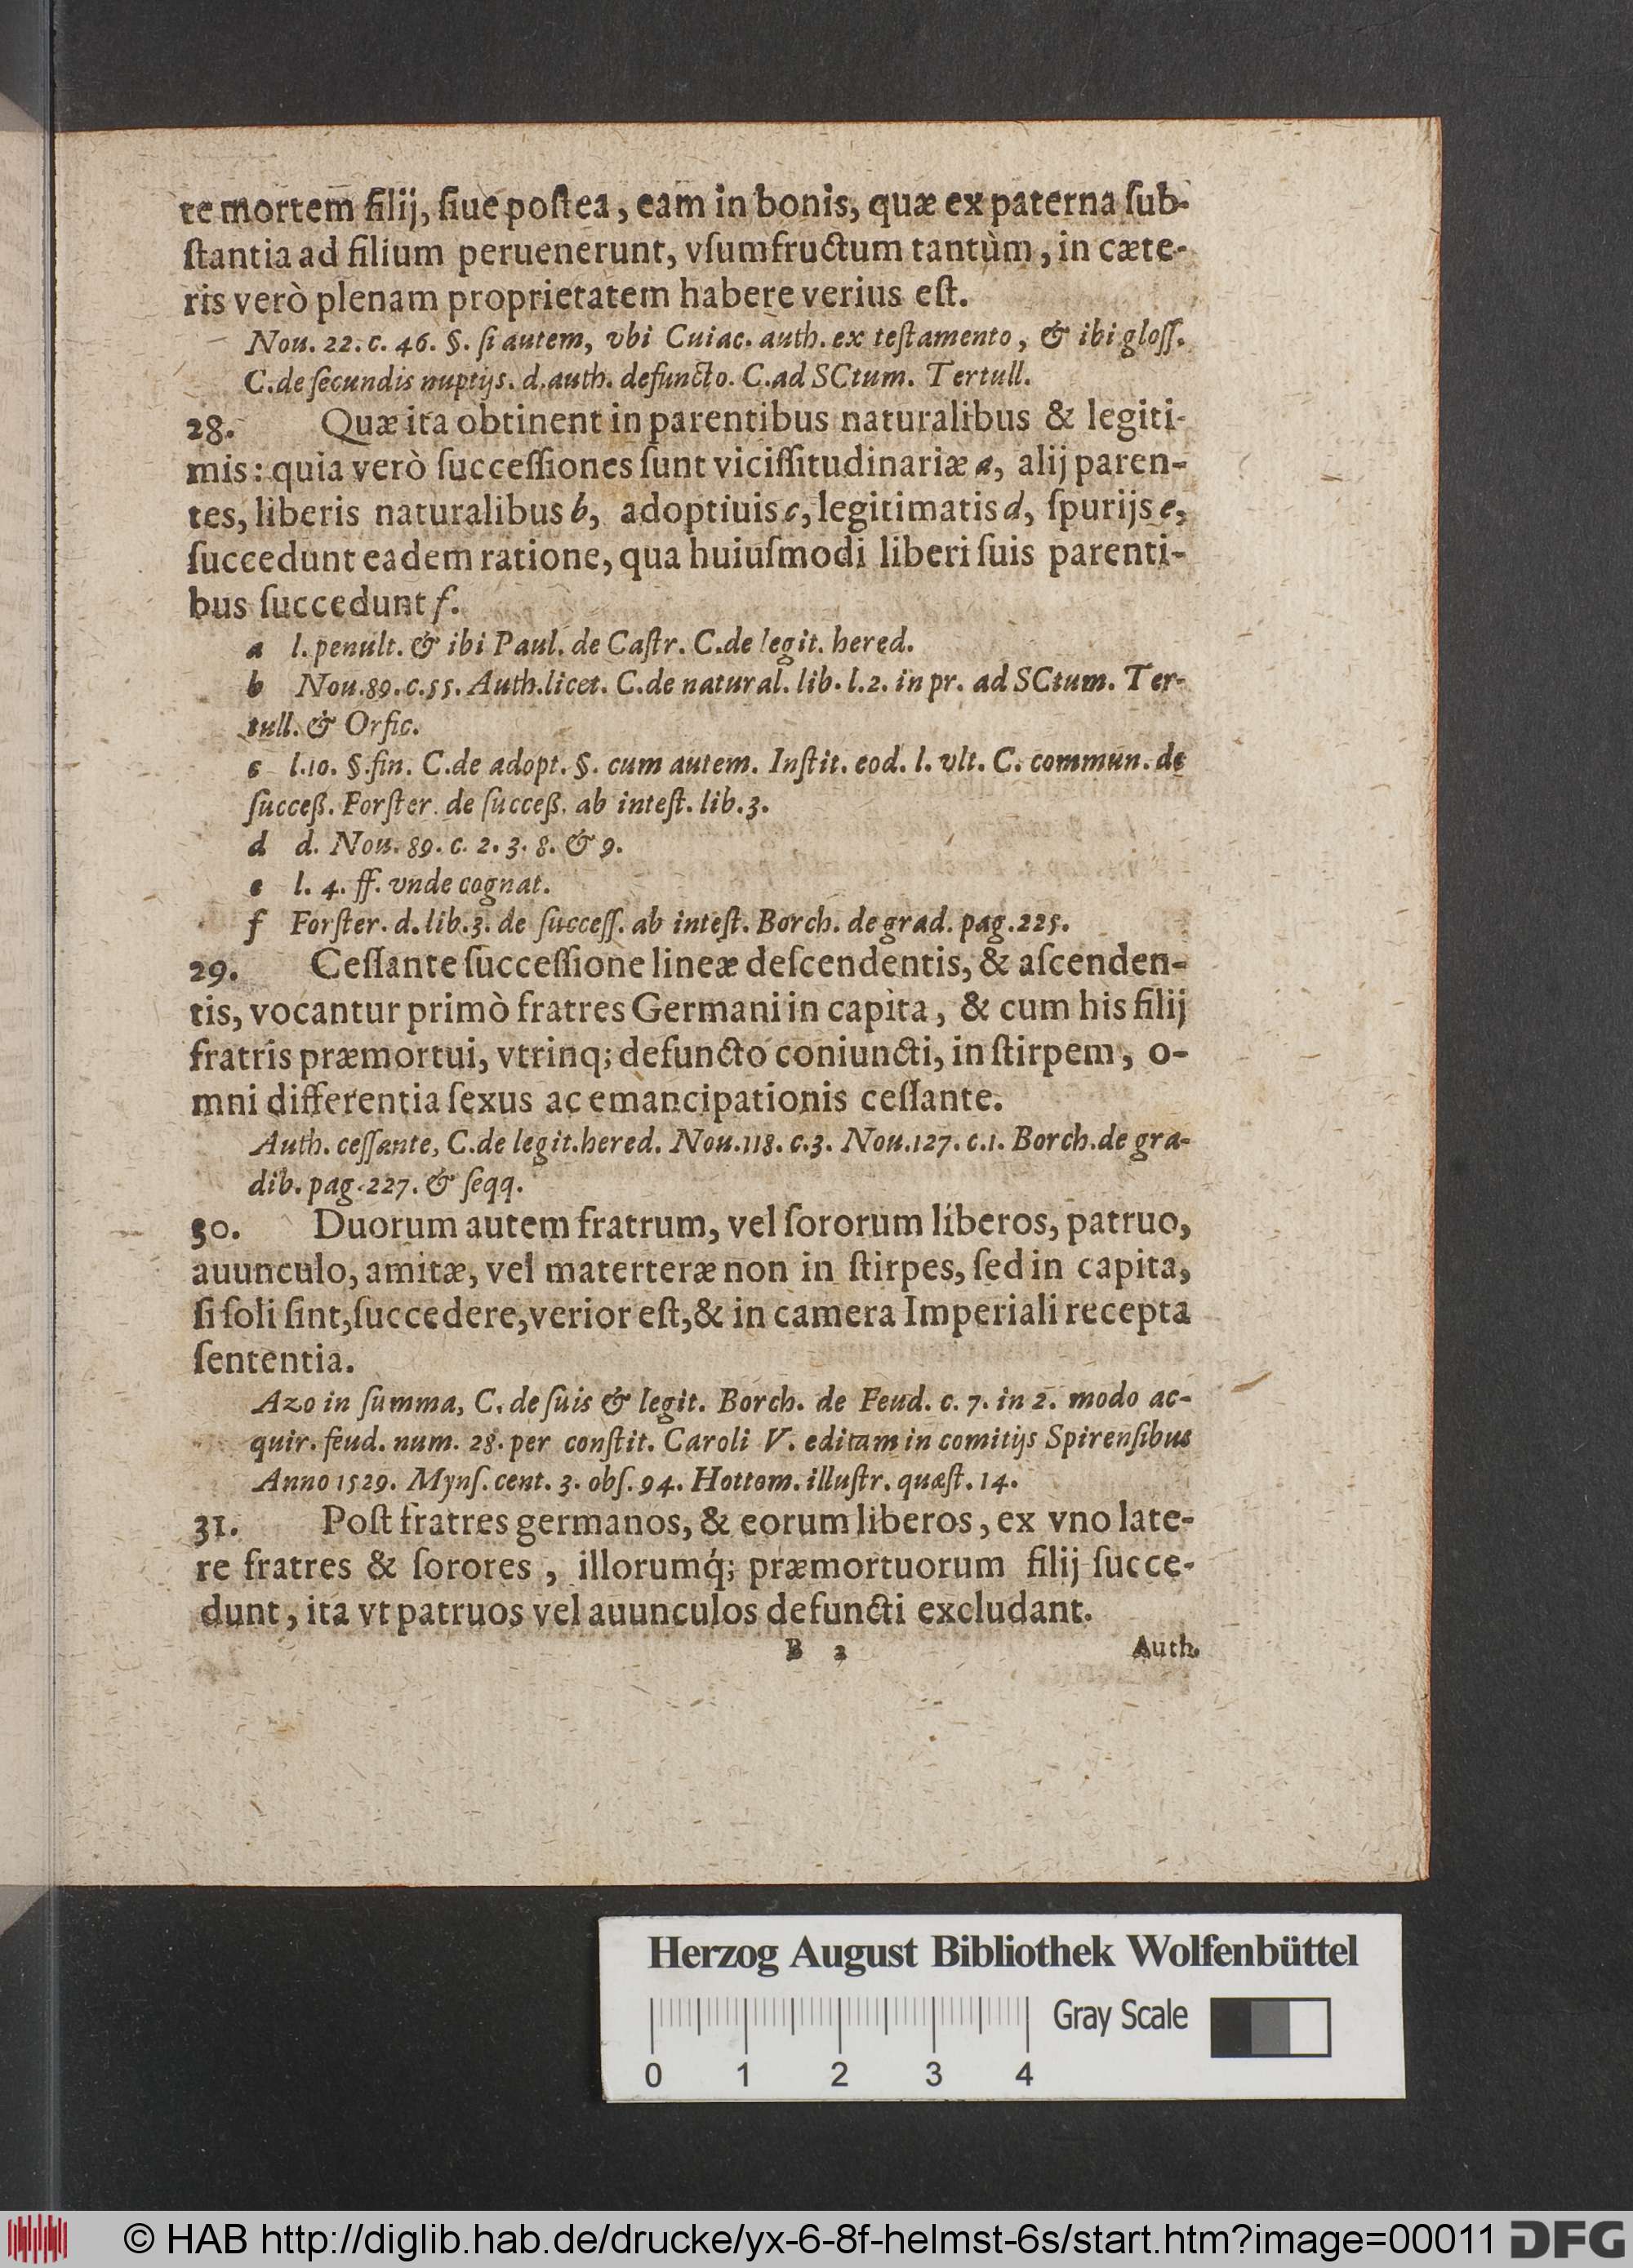 te mortem filij, ſiue poſtea, eam in bonis, quæ ex paterna ſub-
ſtantia ad filium peruenerunt, vſumfructum tantùm, in cæte-
ris verò plenam proprietatem habere verius eſt.
Nou. 22. c. 46. §. ſi autem, vbi Cuiac. auth. ex teſtamento, & ibi gloſſ.
C. de ſecundis nuptijs. d. auth. defuncto. C. ad SCtum. Tertull.
28. Quæ ita obtinent in parentibus naturalibus & legiti-
mis: quia verò ſucceſſiones ſunt viciſſitudinariæ a, alij paren-
tes, liberis naturalibus b, adoptiuis c, legitimatis d, ſpurijs e,
ſuccedunt eadem ratione, qua huiuſmodi liberi ſuis parenti-
bus ſuccedunt f.
a l. penult. & ibi Paul. de Caſtr. C. de legit. hered.
b Nou. 89. c. 55. Auth. licet. C. de natural. lib. l. 2. in pr. ad SCtum. Ter-
tull. & Orfic.
c l. 10. §. fin. C. de adopt. §. cum autem. Inſtit. eod. l. vlt. C. commun. de
ſucceß. Forſter. de ſucceß. ab inteſt. lib. 3.
d d. Nou. 89. c. 2. 3. 8. & 9.
e l. 4. ff. vnde cognat.
f Forſter. d. lib. 3. de ſucceſſ. ab inteſt. Borch. de grad. pag. 225.
29. Ceſſante ſucceſſione lineæ deſcendentis, & aſcenden-
tis, vocantur primò fratres Germani in capita, & cum his filij
fratris præmortui, vtrinq; defuncto coniuncti, in ſtirpem, o-
mni differentia ſexus ac emancipationis ceſſante.
Auth. ceſſante, C. de legit. hered. Nou. 118. c. 3. Nou. 127. c. 1. Borch. de gra-
dib. pag. 227. & ſeqq.
30. Duorum autem fratrum, vel ſororum liberos, patruo,
auunculo, amitæ, vel materteræ non in ſtirpes, ſed in capita,
ſi ſoli ſint, ſuccedere, verior eſt, & in camera Imperiali recepta
ſententia.
Azo in ſumma, C. de ſuis & legit. Borch. de Feud. c. 7. in 2. modo ac-
quir. feud. num. 28. per conſtit. Caroli V. editam in comitijs Spirenſibus
Anno 1529. Mynſ. cent. 3. obſ. 94. Hottom. illuſtr. quæſt. 14.
31. Poſt fratres germanos, & eorum liberos, ex vno late-
re fratres & ſorores, illorumq́; præmortuorum filij ſucce-
dunt, ita vt patruos vel auunculos defuncti excludant.
B 2 Auth.
Herzog August Bibliothek Wolfenbüttel
Gray Scale
0 1 2 3 4
© HAB http://diglib.hab.de/drucke/yx-6-8f-helmst-6s/start.htm?image=00011 DFG